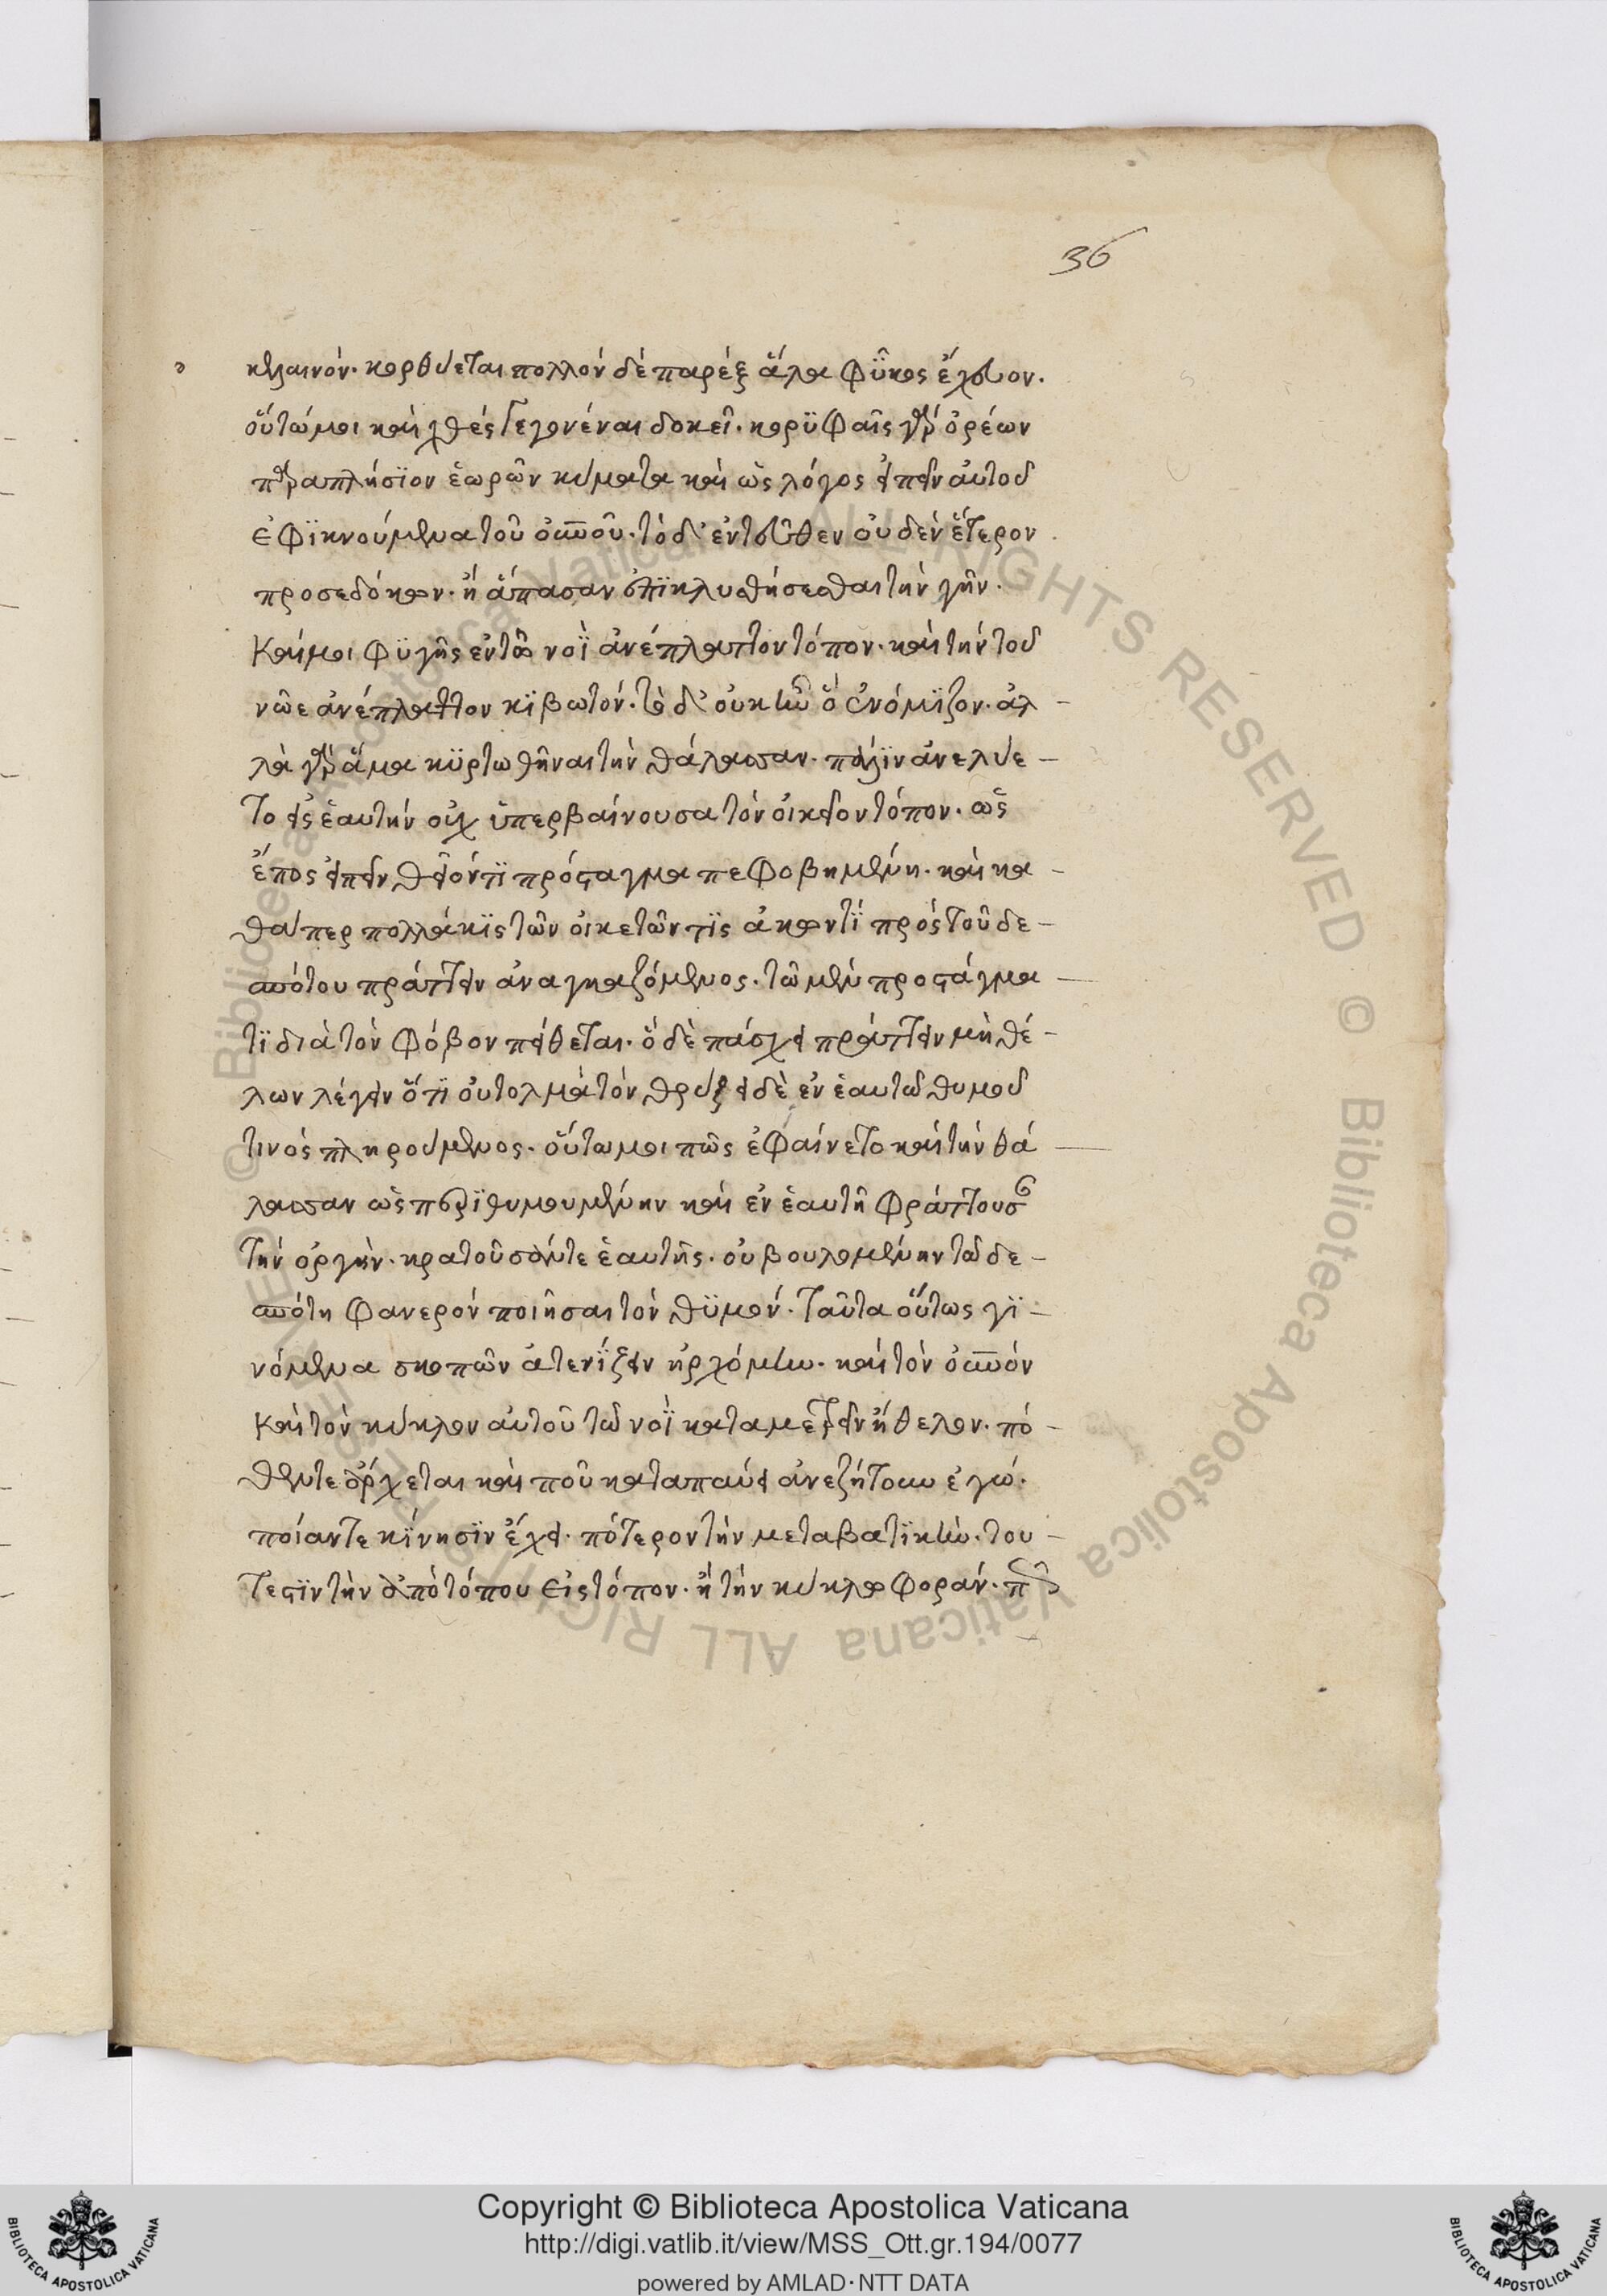 36
κελαινόν. κορθύεται πολλόν δὲ παρέξ ἅλα φῦκος ἔχευον.
οὕτώμοι καὶ χθές γεγονέναι δοκεῖ. κορϋφαῖς γὰρ ὀρέων
παραπλήσϊον ἑωρῶν κύματα καὶ ὡς λόγος εἰπεῖν αὐτοῦ
ἐφϊκνούμενα τοῦ οὐνοῦ. τὸ δ' ἐντεῦθεν οὐδὲν ἕτερον
προσεδόκων. ἢ ἅπασαν ἐπϊκλυσθήσεσθαι τὴν γῆν.
Καίμοι φϋγῆς ἐν τῶ νοῒ ἀνέπλαττον τόπον. καὶ τὴν τοῦ
νῶε ἀνέπλαττον κϊβωτόν. τὸ δ' οὐκ ἦν ὃ ἐνόμϊζον. ἀλ
λὰ γὰρ ἅμα κϋρτωθῆναι τὴν θάλασσαν. πάλϊν ἀνελύε
το εἰς ἑαυτὴν οὐχ ὑπερβαίνουσα τὸν οἰκεῖον τόπον. ὡς
ἔπος εἰπεῖν θεῖόν τϊ πρόσταγμα πεφοβημένη. καὶ κα
θάπερ πολλάκϊς τῶν οἰκετῶν τϊς ἀκοντὶ πρὸς τοῦ δε
σπότου πράττειν ἀναγκαζόμενος. τῶ μὲν προστάγμα
τϊ διὰ τὸν φόβον πείθεται. ὃ δὲ πάσχει πράττειν μὴ θέ
λων λέγειν ὅτϊ οὐ τολμᾶ τὸν θρύζει δὲ ἐν ἑαυτῶ θυμοῦ
τινὸς πληρούμενος. οὕτω μοι πῶς ἐφαίνετο καὶ τὴν θά
λασσαν ὡς περϊθυμουμένην καὶ ἐν ἑαυτῆ φράττουσαν
τὴν ὀργὴν. κρατοῦσάν τε ἑαυτῆς. οὐ βουλομένην τῶ δε
σπότη φανερόν ποιῆσαι τὸν θϋμόν. Ταῦτα οὕτως γϊ
νόμενα σκοπῶν ἀτενΐζειν ἠρχόμην. καὶ τὸν οὐνόν
καὶ τὸν κύκλον αὐτοῦ τῶ νοῒ καταμετρεῖν ἤθελον. πό
θεν τε ἄρχεται καὶ ποῦ καταπαύει ἀνεζήτουν ἐγώ.
ποίαν τε κίνησϊν ἔχει. πότερον τὴν μεταβατϊκὴν. του
τέστϊν τὴν ἀπὸ τόπου εἰς τόπον. ἢ τὴν κυκλοφοράν.
Copyright © Biblioteca Apostolica Vaticana
http://digi.vatlib.it/view/MSS_Ott.gr.194/0077
powered by AMLAD·NTT DATA